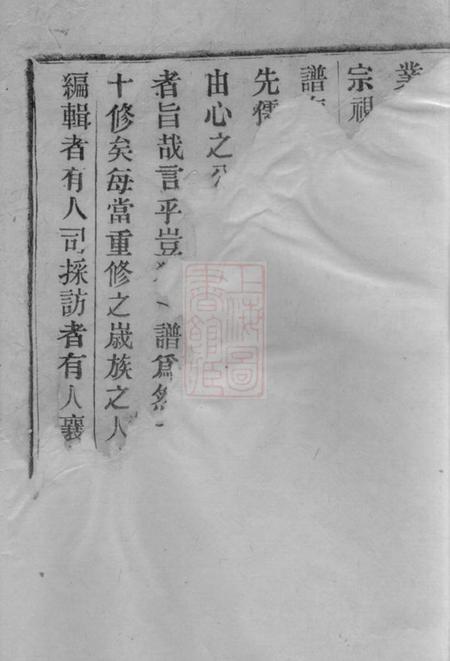 業
宗祖
譜
先儒
由心之
者旨哉言乎豈 譜爲
十修矣每當重修之歲族之人
編輯者有人司採訪者有人襄
上海圖書館藏